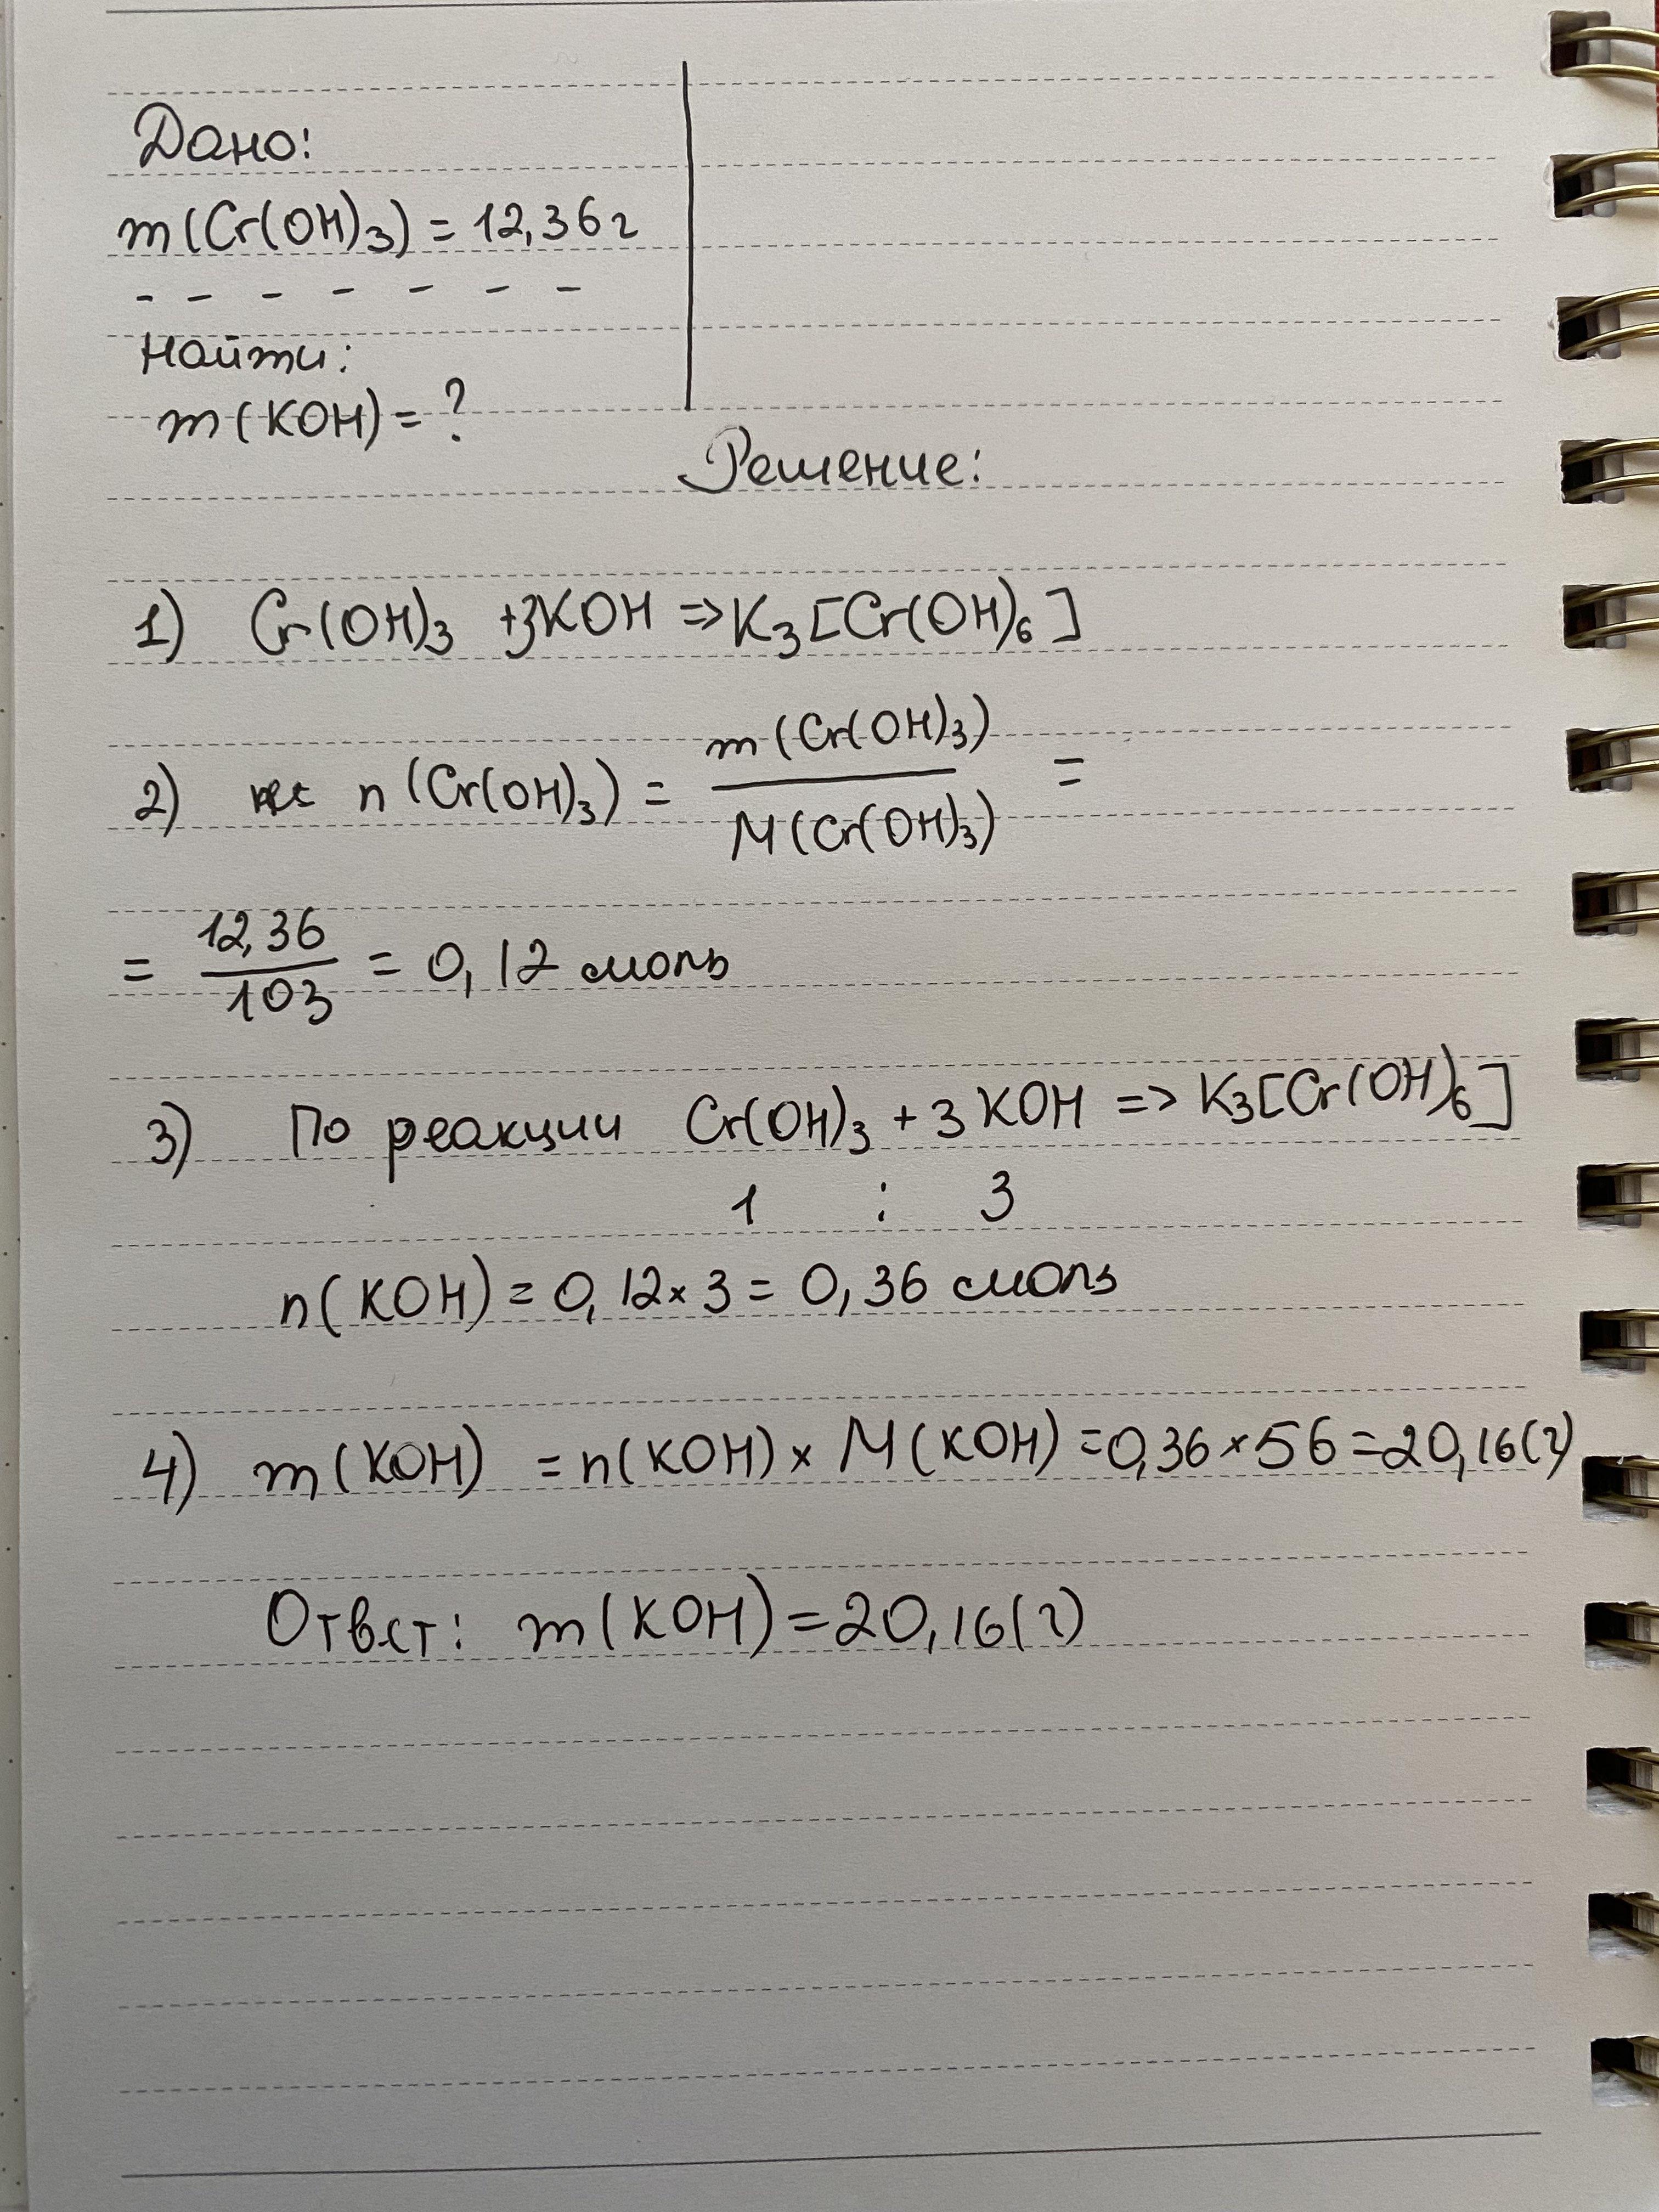 Дано:
m(Cr(OH)3) = 12,36 г
- - - - - - -
Найти:
m(KOH) = ?
Решение:
1) Cr(OH)3 +3KOH => K3[Cr(OH)6]
2) n(Cr(OH)3) = m(Cr(OH)3) / M(Cr(OH)3) =
= 12,36 / 103 = 0,12 моль
3) По реакции Cr(OH)3 + 3 KOH => K3[Cr(OH)6]
1 : 3
n(KOH) = 0,12 × 3 = 0,36 моль
4) m(KOH) = n(KOH) × M(KOH) = 0,36 × 56 = 20,16 (г)
Ответ: m(KOH) = 20,16 (г)